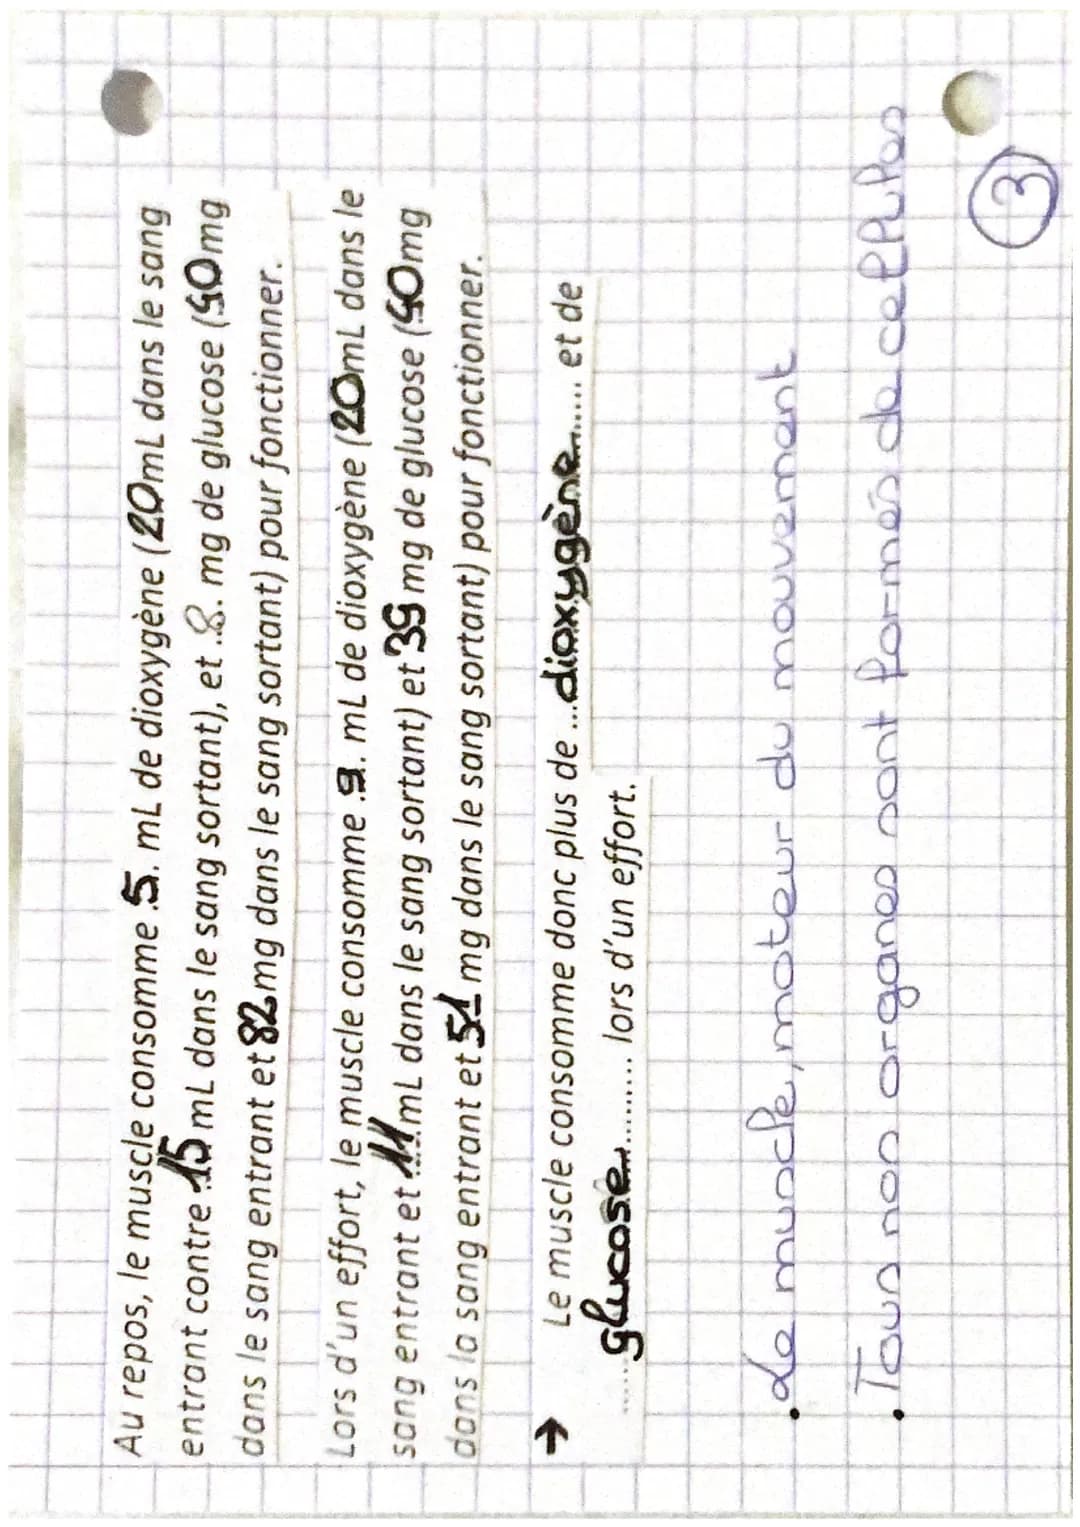 Au repos, le muscle consomme .5. mL de dioxygène (20mL dans le sang
entrant contre 15 mL dans le sang sortant), et ..8. mg de glucose (90mg
dans le sang entrant et 82 mg dans le sang sortant) pour fonctionner.
Lors d'un effort, le muscle consomme .9. mL de dioxygène (20mL dans le
sang entrant et 11 mL dans le sang sortant) et 39 mg de glucose (90mg
dans la sang entrant et 51 mg dans le sang sortant) pour fonctionner.
→ Le muscle consomme donc plus de ...dioxygène...... et de
......glucose.......... lors d'un effort.
• Le muscle, moteur du mouvement
• Tous nos organes sont formés de cellules
3